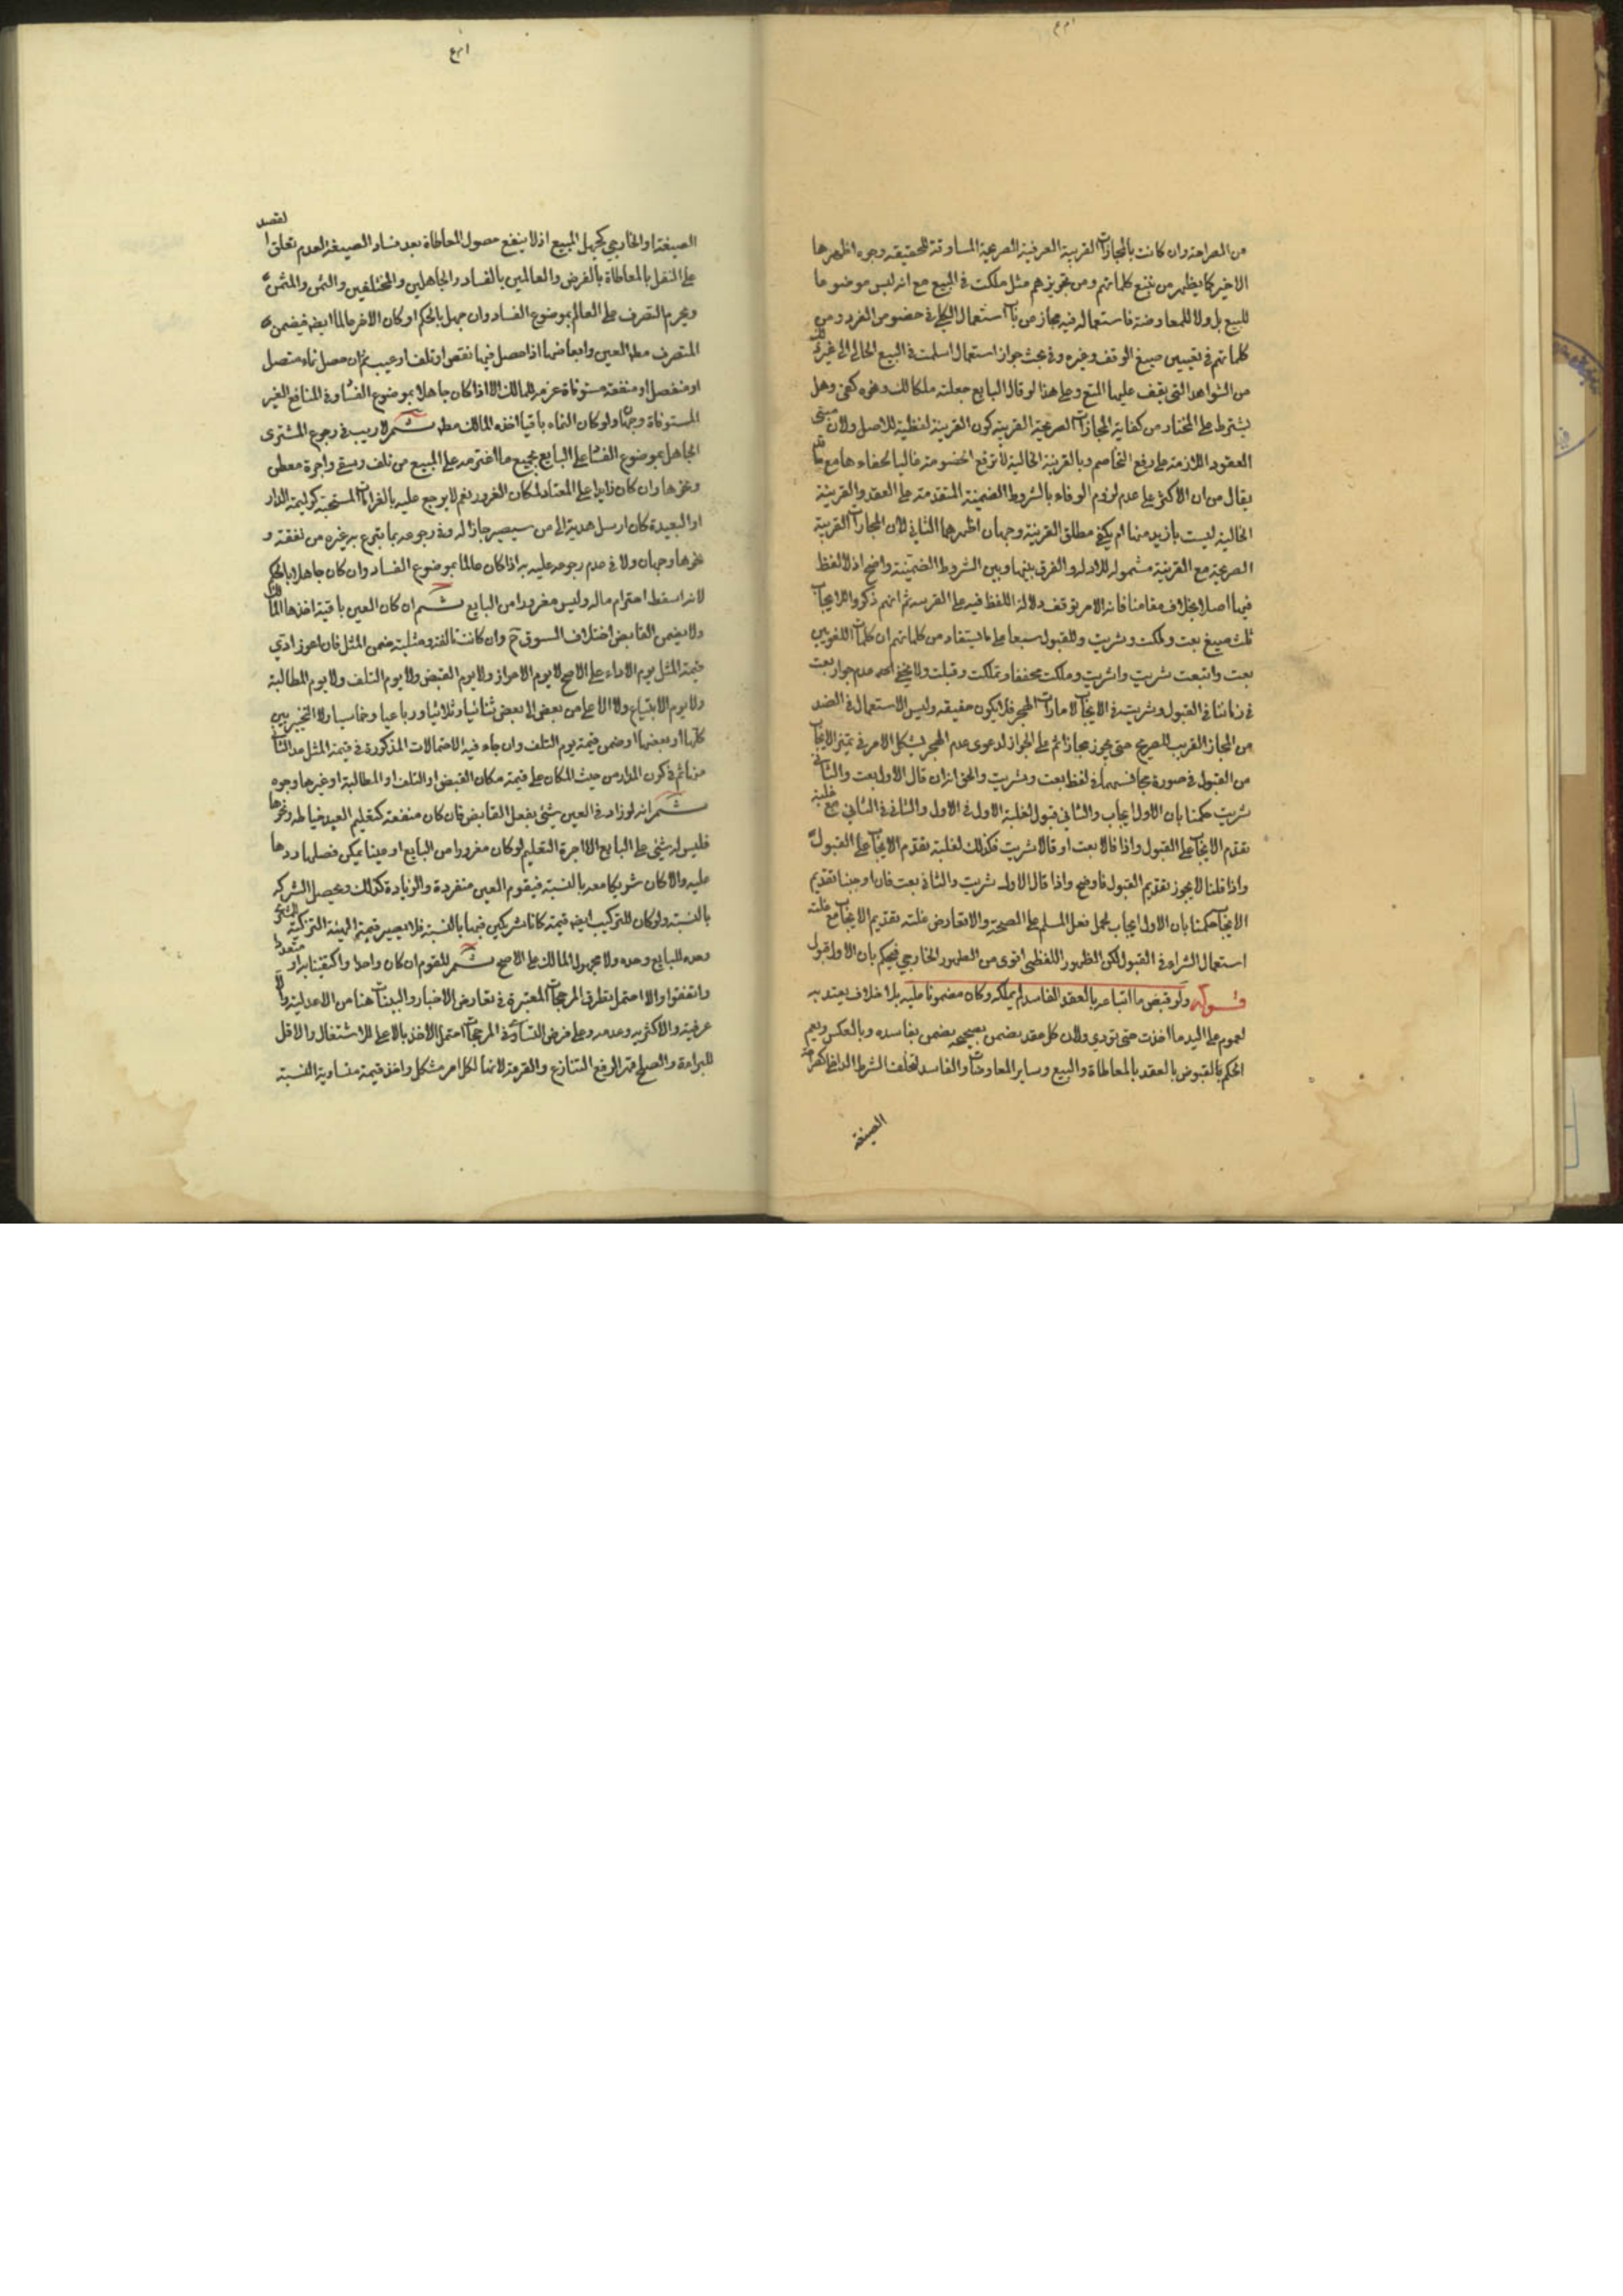 من الصراحة وان كانت بالمجازات القريبة العرفية الصريحة المساوقة للحقيقة وجوه اظهرها
الاخير كما يظهر من تتبع كلماتهم ومن تجويزهم مثل ملكت في البيع مع انه ليس موضوعا
للبيع بل ولا للمعاوضة فاستعماله فيه مجاز من باب استعمال الكلي في خصوص الفرد ومن
كلماتهم في تعيين صيغ الوقف وغيره وفي بحث جواز استعمال اسلمت في البيع الحالي الى غير ذلك
من الشواهد التي يقف عليها المتتبع وعلى هذا لو قال البايع جعلته ملكا لك ونحوه كفى وهل
يشترط على المختار من كفاية المجازات الصريحة القريبة كون القرينة لفظية للاصل ولان مبنى
العقود اللازمة على رفع التخاصم وبالقرينة الحالية لا ترفع الخصومة غالبا لخفاءها مع ما قد
يقال من ان الاكثر على عدم لزوم الوفاء بالشروط الضمنية المتقدمة على العقد والقرينة
الحالية ليست بازيد منها ام يكفي مطلق القرينة وجهان اظهرهما الثاني لان المجازات القريبة
الصريحة مع القرينة مشمولة للادلة والفرق بينها وبين الشروط الضمنية واضح اذ لا لفظ
فيها اصلا بخلاف مقامنا فانه لامر يتوقف دلالة اللفظ فيه على القرينة ثم انهم ذكروا للايجاب
ثلث صيغ بعت وملكت وشريت وللقبول سبعا على ما يستفاد من كلماتهم ان كلمات اللغويين
بعت وابتعت شريت واشتريت وملكت مخففا وتملكت وقبلت ولا يخفى عدم جواز بعت
في زماننا في القبول وشريت في الايجاب لامارات الهجر فلا يكون حقيقة وليس الاستعمال في الضد
من المجاز القريب الصريح حتى يجوز مجازا ثم على الجواز لدعوى عدم الهجر يشكل الامر في تميز الايجاب
من القبول في صورة مجانستهما في لفظ بعت وشريت والحق انه ان قال الاول بعت والثاني
شريت حكمنا بان الاول ايجاب والثاني قبول لغلبة الاول في الاول والثاني في الثاني مع غلبة
تقدم الايجاب على القبول واذا قالا بعت او قالا شريت فكذلك لغلبة تقدم الايجاب على القبول
واذا قلنا لا يجوز تقديم القبول فاوضح واذا قال الاول شريت والثاني بعت فان اوجبنا تقديم
الايجاب حكمنا بان الاول ايجاب لحمل فعل المسلم على الصحة والا تعارض غلبة تقديم الايجاب مع غلبة
استعمال الشراء في القبول لكن الظهور اللفظي اقوى من الظهور الخارجي فيحكم بان الاول قبول
قوله ولو قبض ما ابتاعه بالعقد الفاسد لم يملكه وكان مضمونا عليه بلا خلاف يعتد به
لعموم على اليد ما اخذت حتى تودي ولان كل عقد يضمن بصحيحه يضمن بفاسده وبالعكس ويعم
الحكم بالقبوض بالعقد بالمعاطاة والبيع وساير المعاوضات والفاسد لتخلف الشرط الداخلي كصراحة
الصيغة
الصيغة او الخارجي كجهل المبيع اذ لا ينفع حصول المعاطاة بعد فساد الصيغة لعدم تعلق القصد
على النقل بالمعاطاة بالفرض والعالمين بالفساد والجاهلين والمختلفين والثمن والمثمن
ويحرم التصرف على العالم بموضوع الفساد وان جهل بالحكم او كان الاخر عالما ايضا فيضمن
المتصرف مطلقا العين وابعاضها اذا حصل فيها نقص او تلف او عيب ثم ان حصل نماء متصل
او منفصل او منفعة مستوفاة غرمه للمالك الا اذا كان جاهلا بموضوع الفساد وفي المنافع الغير
المستوفاة وجهان ولو كان النماء باقيا اخذه المالك مطلقا ثم لا ريب في رجوع المشتري
الجاهل بموضوع الفساد على البايع بجميع ما اغترمه على المبيع من تلف وسقي واجرة معطى
وغيرها وان كان زايدا على المعتاد لمكان الغرور نعم لا يرجع عليه بالغرامات المستحبة كوليمة الدار
او البعيدة كان ارسل هدية الى من سيصير جارا له وفي رجوعه بما تبرع به غيره من نفقته و
نحوها وجهان ولا في عدم رجوعه عليه به اذا كان عالما بموضوع الفساد وان كان جاهلا بالحكم
لانه اسقط احترام ماله وليس مغرورا من البايع ثم ان كان العين باقية اخذها المالك
ولا يضمن القابض اختلاف السوق ح وان كانت تالفة ومثلية ضمن المثل فان اعوز ادي
قيمة المثل يوم الاداء على الاصح لا يوم الاعواز ولا يوم القبض ولا يوم التلف ولا يوم المطالبة
ولا يوم الابتياع ولا الاعلى من بعض الى بعض ثنائيا وثلاثيا ورباعيا وخماسيا ولا التخيير بين
كلها او بعضها او ضمن قيمة يوم التلف وان جاء فيه الاحتمالات المذكورة في قيمة المثل عدا الثاني
منها ثم في كون المدار من حيث المكان على قيمة مكان القبض او التلف او المطالبة او غيرها وجوه
ثم انه لو زاد في العين شيئ بفعل القابض فان كان منفعة كتعليم العبد خياطة ونحوها
فليس له شيئ على البايع الا اجرة التعليم لو كان مغرورا من البايع او عينا يمكن فصلها ردها
عليه والا كان شريكا معه بالنسبة فيقوم العين منفردة والزيادة كذلك ويحصل الشركة
بالنسبة ولو كان للتركيب ايضا قيمة كانا شريكين فيها بالنسبة فلا يصير قيمة الهيئة التركيبية للمشتري
وحده للبايع وحده ولا مجهول المالك على الاصح ثم المقوم ان كان واحدا واكتفينا به او متعددا
واتفقوا والا احتمل تطرق المرجحات المعتبرة في تعارض الاخبار والبينات هنا من الاعدلية والا
عرفية والاكثرية وعدمه وعلى فرض التساوي في المرجحات احتمل الاخذ بالاعلى للاشتغال والاقل
للبراءة والصلح قهرا لرفع التنازع والقرعة لانها لكل امر مشكل واخذ قيمة متساوية النسبة